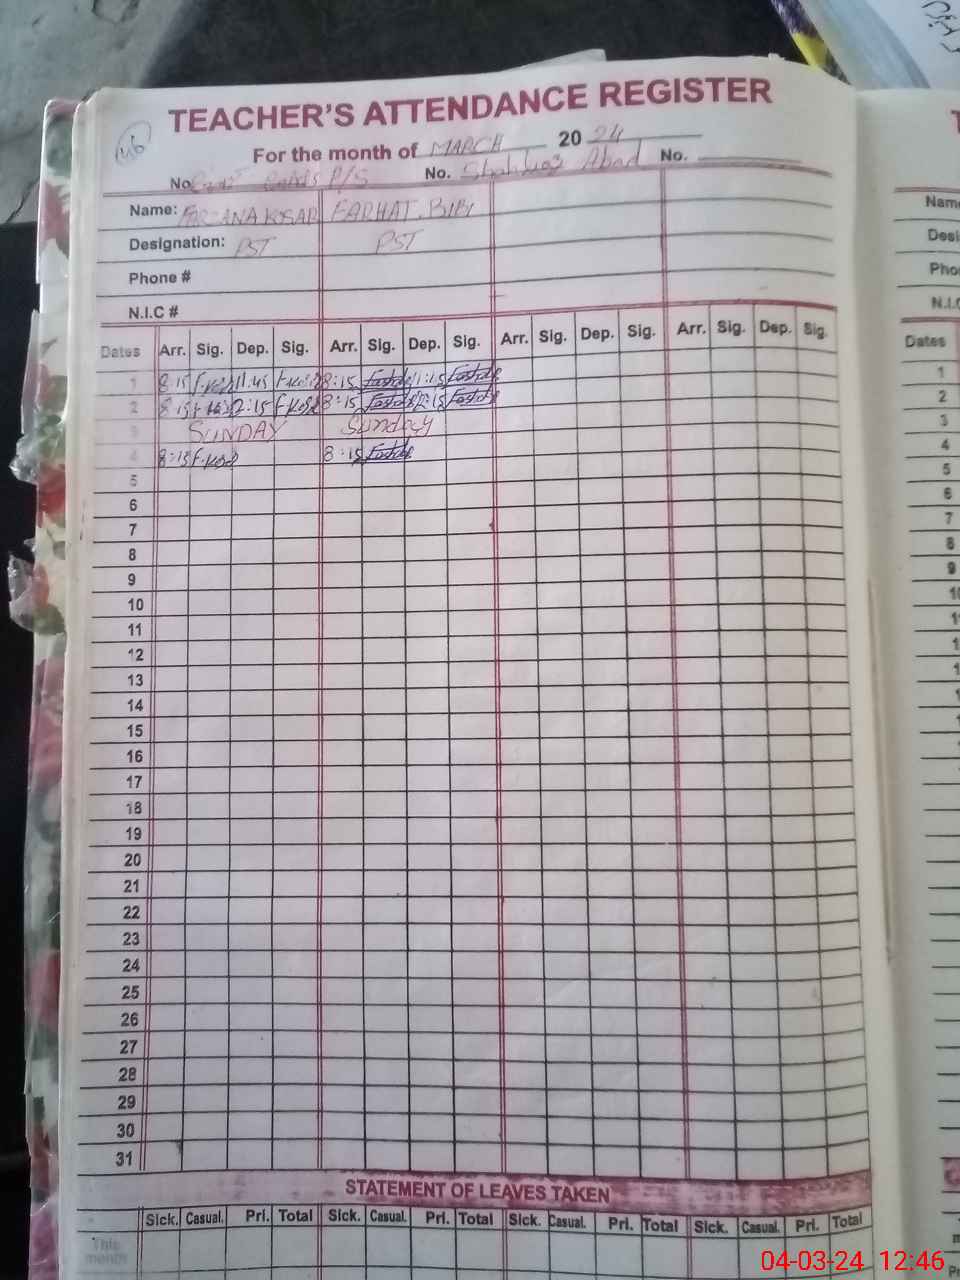 TEACHER'S ATTENDANCE REGISTER
46
For the month of MARCH 20 24
No. Govt Girls P/S No. Shahbaz Abad No.
Name: FARZANA KOSAR FARHAT. BIBI
Designation: PST PST
Phone #
N.I.C #
Dates Arr. Sig. Dep. Sig. Arr. Sig. Dep. Sig. Arr. Sig. Dep. Sig. Arr. Sig. Dep. Sig.
1 8:15 F.Kosar 11:45 F.Kosar 8:15 11:45
2 8:15 F.Kosar 12:15 F.Kosar 8:15 12:15
3 SUNDAY Sunday
4 8:15 F.Kosar 8:15
5
6
7
8
9
10
11
12
13
14
15
16
17
18
19
20
21
22
23
24
25
26
27
28
29
30
31
STATEMENT OF LEAVES TAKEN
Sick. Casual. Pri. Total Sick. Casual. Pri. Total Sick. Casual. Pri. Total Sick. Casual. Pri. Total
This month
Name
Desi
Pho
N.I.C
Dates
1
2
3
4
5
6
7
8
9
04-03-24 12:46